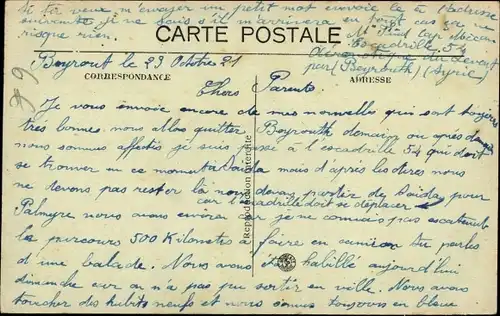 Si tu veux m'envoyer un petit mot envoie le à l'adresse
suivante je ne sais s'il m'arrivera en tout cas ça ne
risque rien.
CARTE POSTALE
Mr Cap mécan
Escadrille 54
du Levant
par (Beyrouth) (Syrie)
Beyrout le 23 Octobre 21
CORRESPONDANCE
ADRESSE
Chers Parents
Je vous envoie encore de mes nouvelles qui sont toujours
très bonnes. nous allons quitter Beyrouth demain ou après demain
nous sommes affectés je suis passé à l'escadrille 54 qui doit
se trouver en ce moment à Saïda mais d'après les dires nous
ne devons pas rester là nous devons partir de Saïda pour
car l'escadrille doit se déplacer
Palmyre nous avons environ car je ne connais pas exactement
le parcours 500 Kilomètres à faire en camion tu parles
d'une balade. Nous avons été habillé aujourd'hui
dimanche car on n'a pas pu sortir en ville. Nous avons
toucher des habits neufs et nous sommes toujours en bleu
(Reproduction interdite)